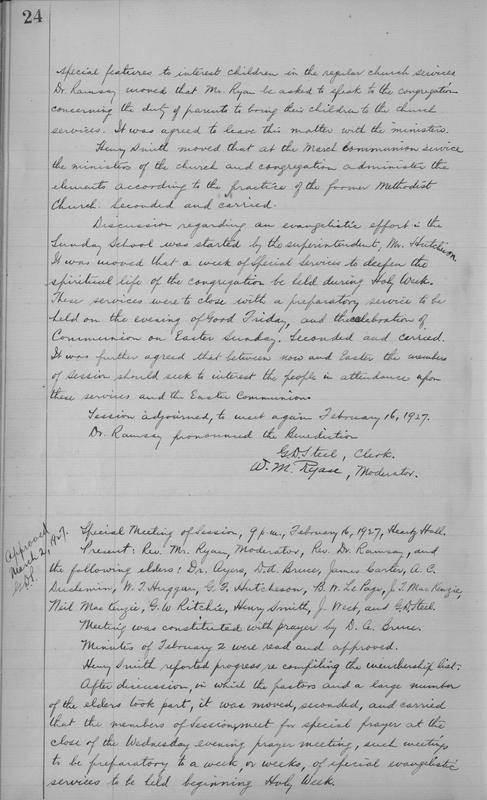 24
special features to interest children in the regular church services
Dr. Ramsay moved that Mr. Ryan be asked to speak to the congregation
concerning the duty of parents to bring their children to the church
services. It was agreed to leave this matter with the ministers.
Henry Smith moved that at the March Communion service
the ministers of the church and congregation administer the
elements according to the practice of the former Methodist
Church. Seconded and carried.
Discussion regarding an evangelistic effort in the
Sunday School was started by the superintendent, Mr. Hutcheson
It was moved that a week of Special Services to deepen the
spiritual life of the congregation be held during Holy Week.
These services were to close with a preparatory service to be
held on the evening of Good Friday, and the celebration of
Communion on Easter Sunday. Seconded and carried.
It was further agreed that between now and Easter the members
of Session should seek to interest the people in attendance upon
these services and the Easter Communion.
Session adjourned, to meet again February 16, 1927.
Dr. Ramsay pronounced the Benediction
G.D. Steel, Clerk.
W. M. , Moderator.
Approved
March 2, 1927.
G.D.S.
Special Meeting of Session, 9 p.m., February 16, 1927, Hall.
Present: Rev. Mr. Ryan, Moderator, Rev. Dr. Ramsay, and
the following elders: Dr. Ayers, D.A. Bruce, James Carter, A. C.
W. T. Huggan, G. F. Hutcheson, B. W. LePage, J. T. MacKenzie,
Neil MacKenzie, G. W. Ritchie, Henry Smith, J. West, and G.D. Steel.
Meeting was constituted with prayer by D. A. Bruce.
Minutes of February 2 were read and approved.
Henry Smith reported progress, re compiling the membership list.
After discussion, in which the pastors and a large number
of the elders took part, it was moved, seconded, and carried
that the members of Session, meet for special prayer at the
close of the Wednesday evening prayer meeting, such meetings
to be preparatory to a week, or weeks, of special evangelistic
services to be held beginning Holy Week.